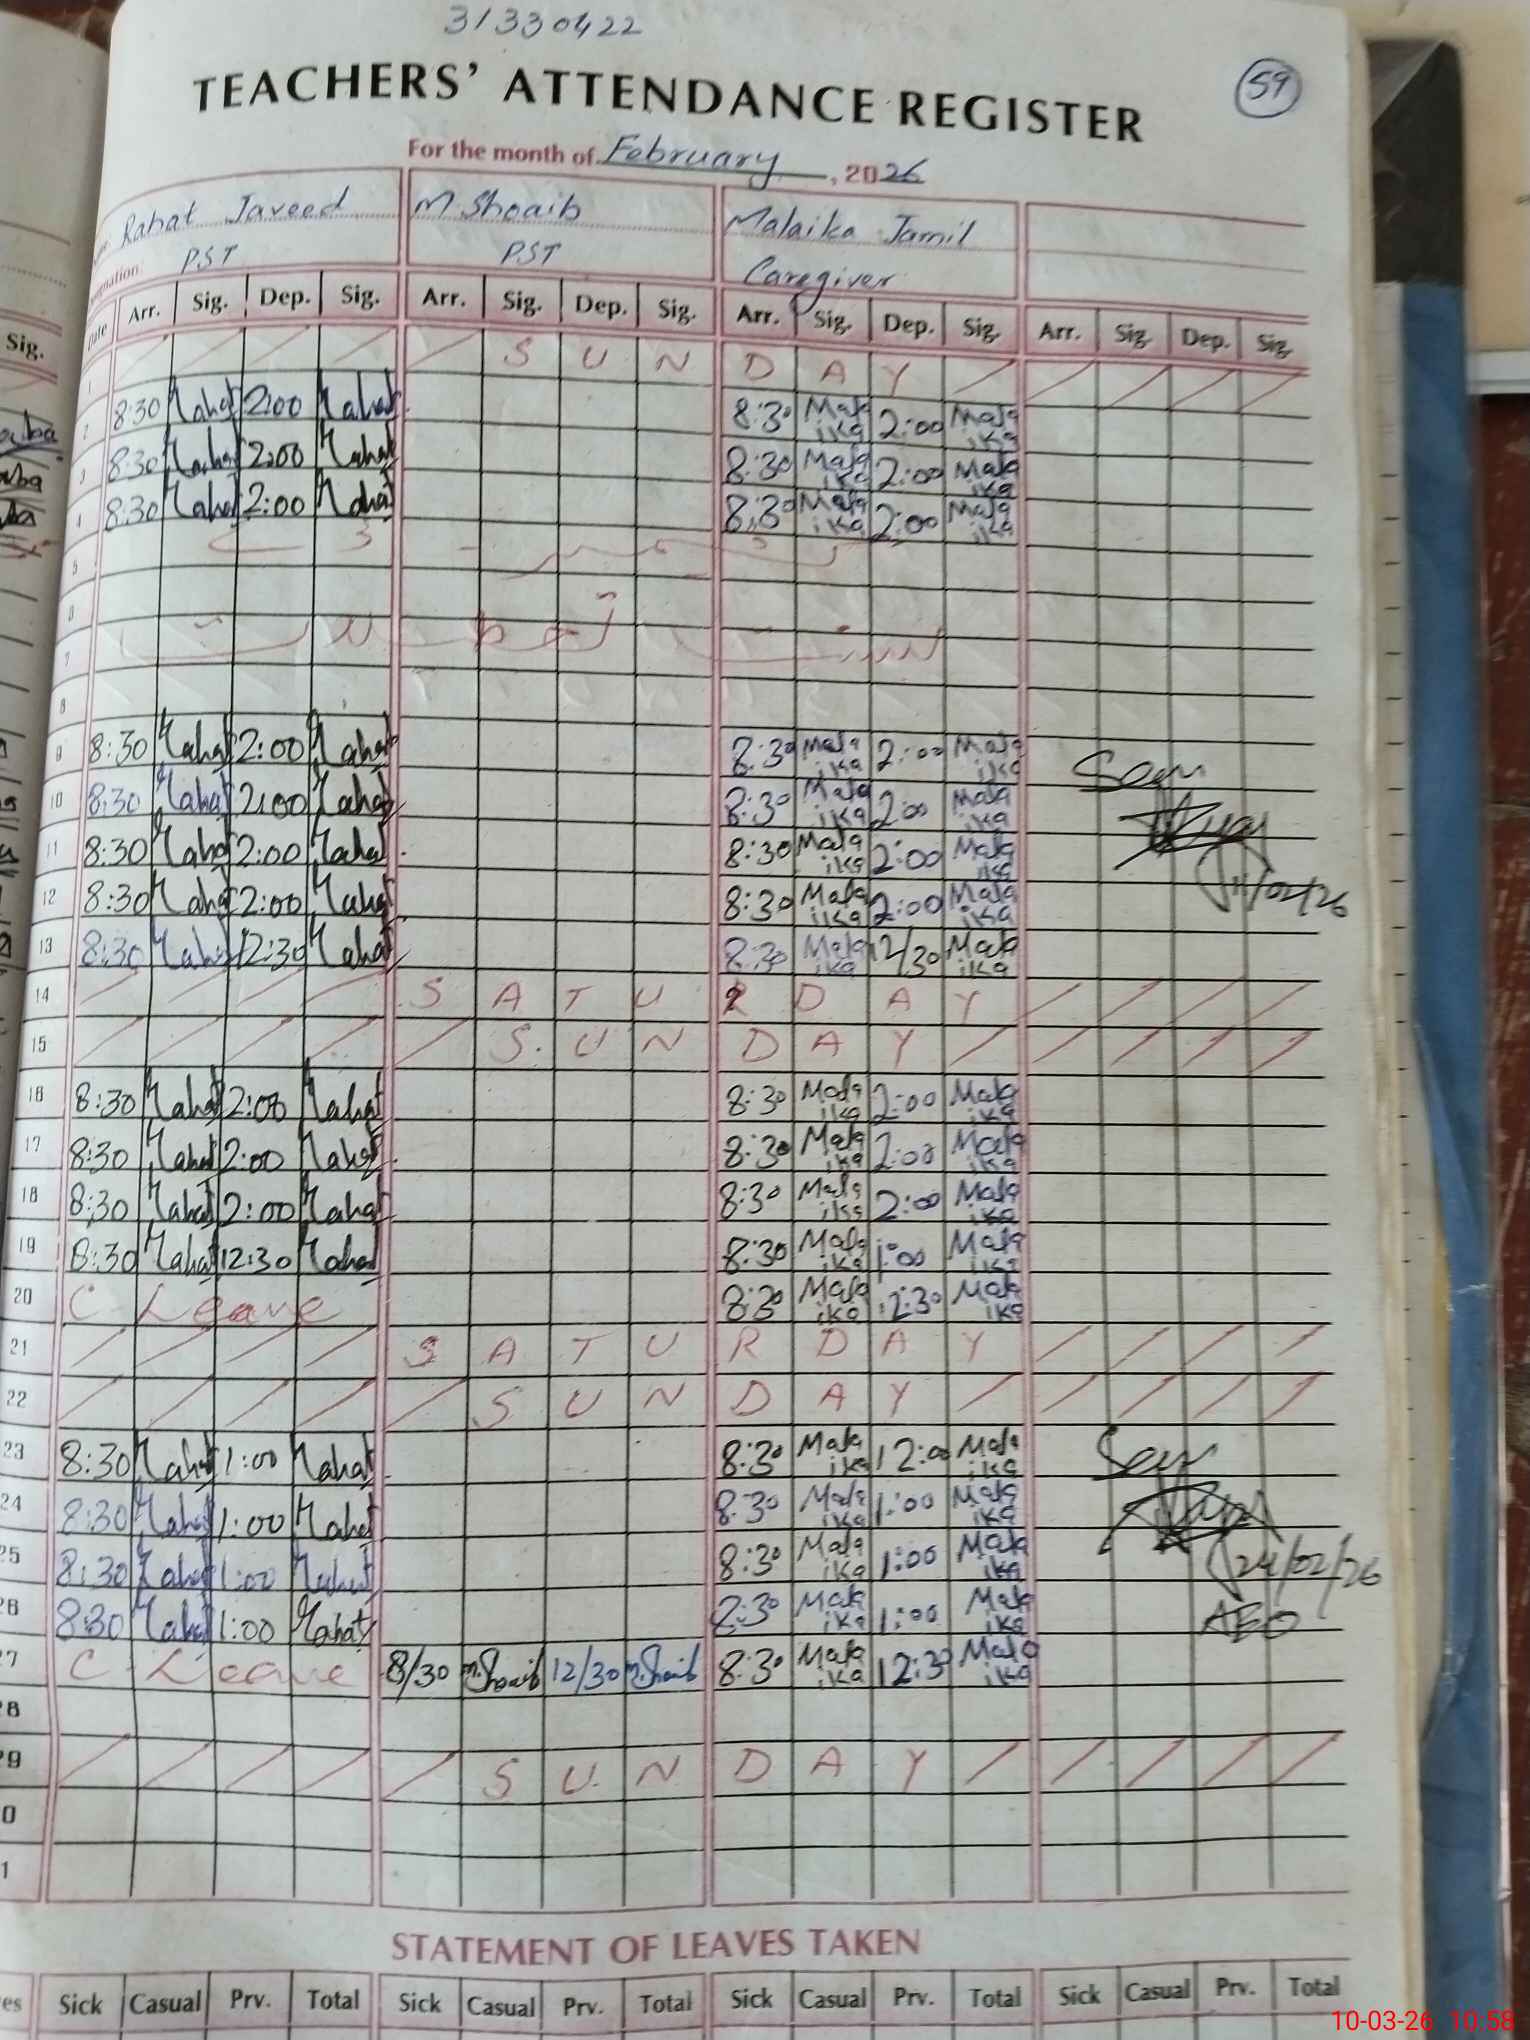 31330422
TEACHERS' ATTENDANCE REGISTER
59
For the month of February, 2026
Rahat Javeed M. Shoaib Malaika Jamil
PST PST Caregiver
Date Arr. Sig. Dep. Sig. Arr. Sig. Dep. Sig. Arr. Sig. Dep. Sig. Arr. Sig. Dep. Sig.
1 S U N D A Y
2 8:30 Rahat 2:00 Rahat 8:30 Malaika 2:00 Malaika
3 8:30 Rahat 2:00 Rahat 8:30 Malaika 2:00 Malaika
4 8:30 Rahat 2:00 Rahat 8:30 Malaika 2:00 Malaika
5
6
7
8
9 8:30 Rahat 2:00 Rahat 8:30 Malaika 2:00 Malaika
Seen
10 8:30 Rahat 2:00 Rahat 8:30 Malaika 2:00 Malaika
11 8:30 Rahat 2:00 Rahat 8:30 Malaika 2:00 Malaika
12 8:30 Rahat 2:00 Rahat 8:30 Malaika 2:00 Malaika
11/02/26
13 8:30 Rahat 12:30 Rahat 8:30 Malaika 12/30 Malaika
14 S A T U R D A Y
15 S U N D A Y
16 8:30 Rahat 2:00 Rahat 8:30 Malaika 2:00 Malaika
17 8:30 Rahat 2:00 Rahat 8:30 Malaika 2:00 Malaika
18 8:30 Rahat 2:00 Rahat 8:30 Malaika 2:00 Malaika
19 8:30 Rahat 12:30 Rahat 8:30 Malaika 1:00 Malaika
20 C Leave 8:30 Malaika 12:30 Malaika
21 S A T U R D A Y
22 S U N D A Y
23 8:30 Rahat 1:00 Rahat 8:30 Malaika 12:00 Malaika
Seen
24 8:30 Rahat 1:00 Rahat 8:30 Malaika 1:00 Malaika
25 8:30 Rahat 1:00 Rahat 8:30 Malaika 1:00 Malaika
24/02/26
26 8:30 Rahat 1:00 Rahat 8:30 Malaika 1:00 Malaika
AEO
27 C Leave 8/30 M.Shoaib 12/30 M.Shoaib 8:30 Malaika 12:30 Malaika
28
29 S U N D A Y
STATEMENT OF LEAVES TAKEN
Sick Casual Prv. Total Sick Casual Prv. Total Sick Casual Prv. Total Sick Casual Prv. Total
10-03-26 10:58